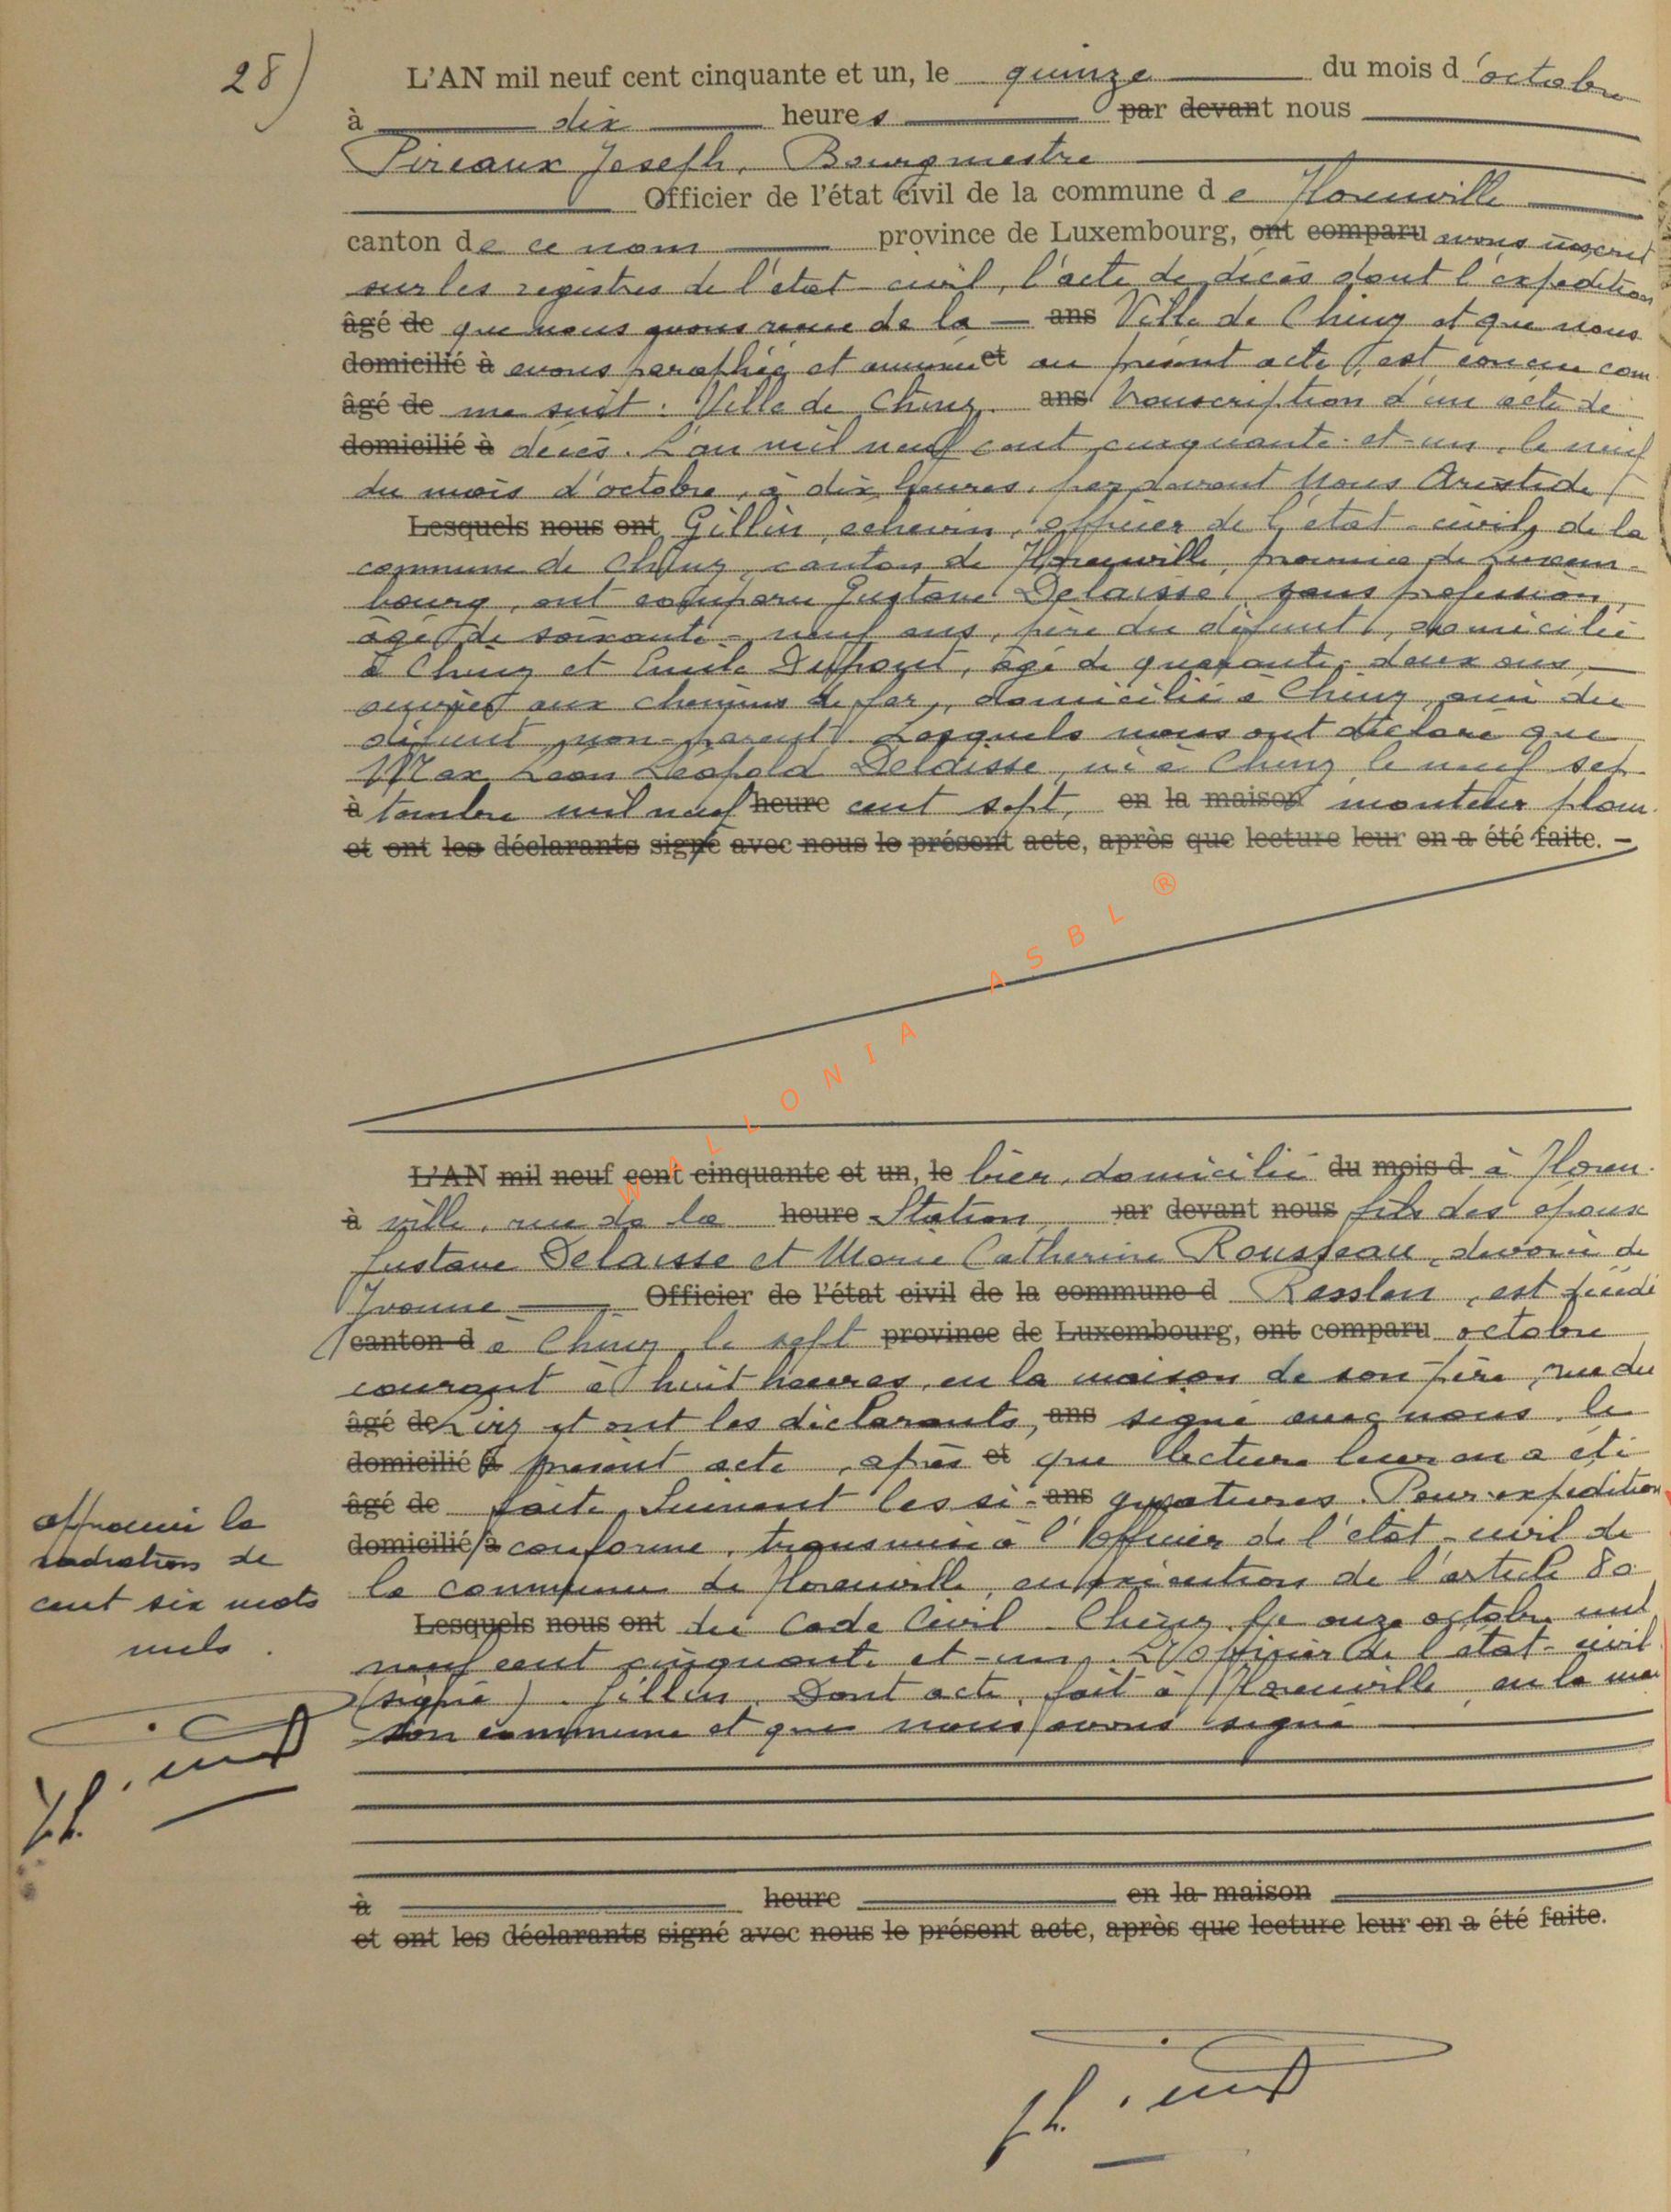 28)
L'AN mil neuf cent cinquante et un, le quinze du mois d'octobre
à dix heures par devant nous
Pireaux Joseph, Bourgmestre
Officier de l'état civil de la commune de Florenville
canton de ce nom province de Luxembourg, ont comparu avons inscrit
sur les registres de l'état-civil, l'acte de décès dont l'expédition
âgé de que nous avons reçue de la ans Ville de Chiny et que nous
domicilié à avons paraphée et annexée et au présent acte est conçu com
âgé de me suit : Ville de Chiny. ans Transcription d'un acte de
domicilié à décès. L'an mil neuf cent cinquante-et-un, le neuf
du mois d'octobre, à dix heures, par devant Nous Aristide
Lesquels nous ont Gillin, echevin, officier de l'état-civil, de la
commune de Chiny, canton de Florenville, province de Luxem-
bourg, ont comparu Gustave Delaisse, sans profession,
âgé de soixante-neuf ans, père du défunt, domicilié
à Chiny et Emile Dupont, âgé de quarante-deux ans,
ouvrier aux chemins de fer, domicilié à Chiny, ami du
défunt, non-parent. Lesquels nous ont déclaré que
Max Léon Léopold Delaisse, né à Chiny le neuf sep
à tembre mil neuf heure cent sept, en la maison monteur plom
et ont les déclarants signé avec nous le présent acte, après que lecture leur en a été faite.
WALLONIA ASBL ®
L'AN mil neuf cent cinquante et un, le bier, domicilié du mois d à Floren
à ville, rue de la heure Station, par devant nous fils des époux
Gustave Delaisse et Marie Catherine Rousseau, divorcé de
Yvonne Officier de l'état civil de la commune d Rasslen, est décédé
canton d à Chiny le sept province de Luxembourg, ont comparu octobre
courant à huit heures, en la maison de son père, rue du
âgé de et ont les déclarants, ans signé avec nous le
domicilié à présent acte, après et que lecture leur en a été
âgé de faite. Suivent les si- ans gnatures. Pour expédition
domicilié à conforme, transmise à l'officier de l'état-civil de
la commune de Florenville, en exécution de l'article 80
Lesquels nous ont du Code Civil. Chiny, le onze octobre mil
neuf cent cinquante et-un. L'officier de l'état-civil
(signé). Gillin. Dont acte, fait à Florenville, en la mai
son commune et que nous avons signé
approuvé la
radiation de
cent six mots
nuls.
à heure en la maison
et ont les déclarants signé avec nous le présent acte, après que lecture leur en a été faite.